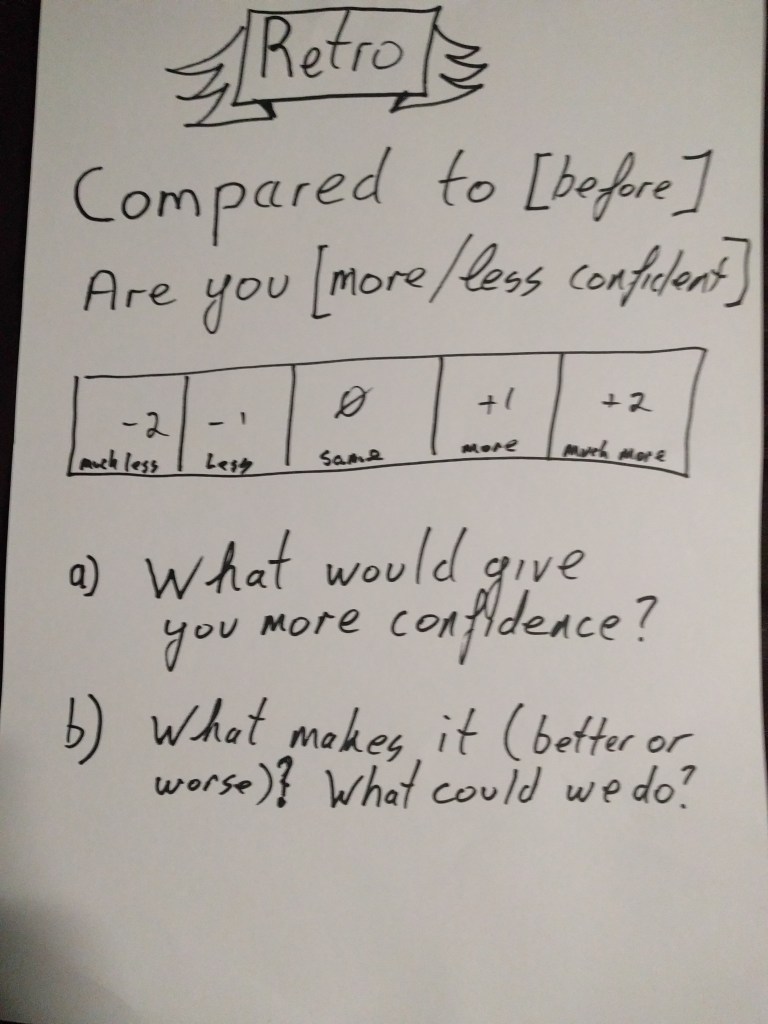 Retro
Compared to [before]
Are you [more/less confident]
-2 -1 Ø +1 +2
much less Less same more much more
a) What would give
you more confidence?
b) What makes it (better or
worse)? What could we do?